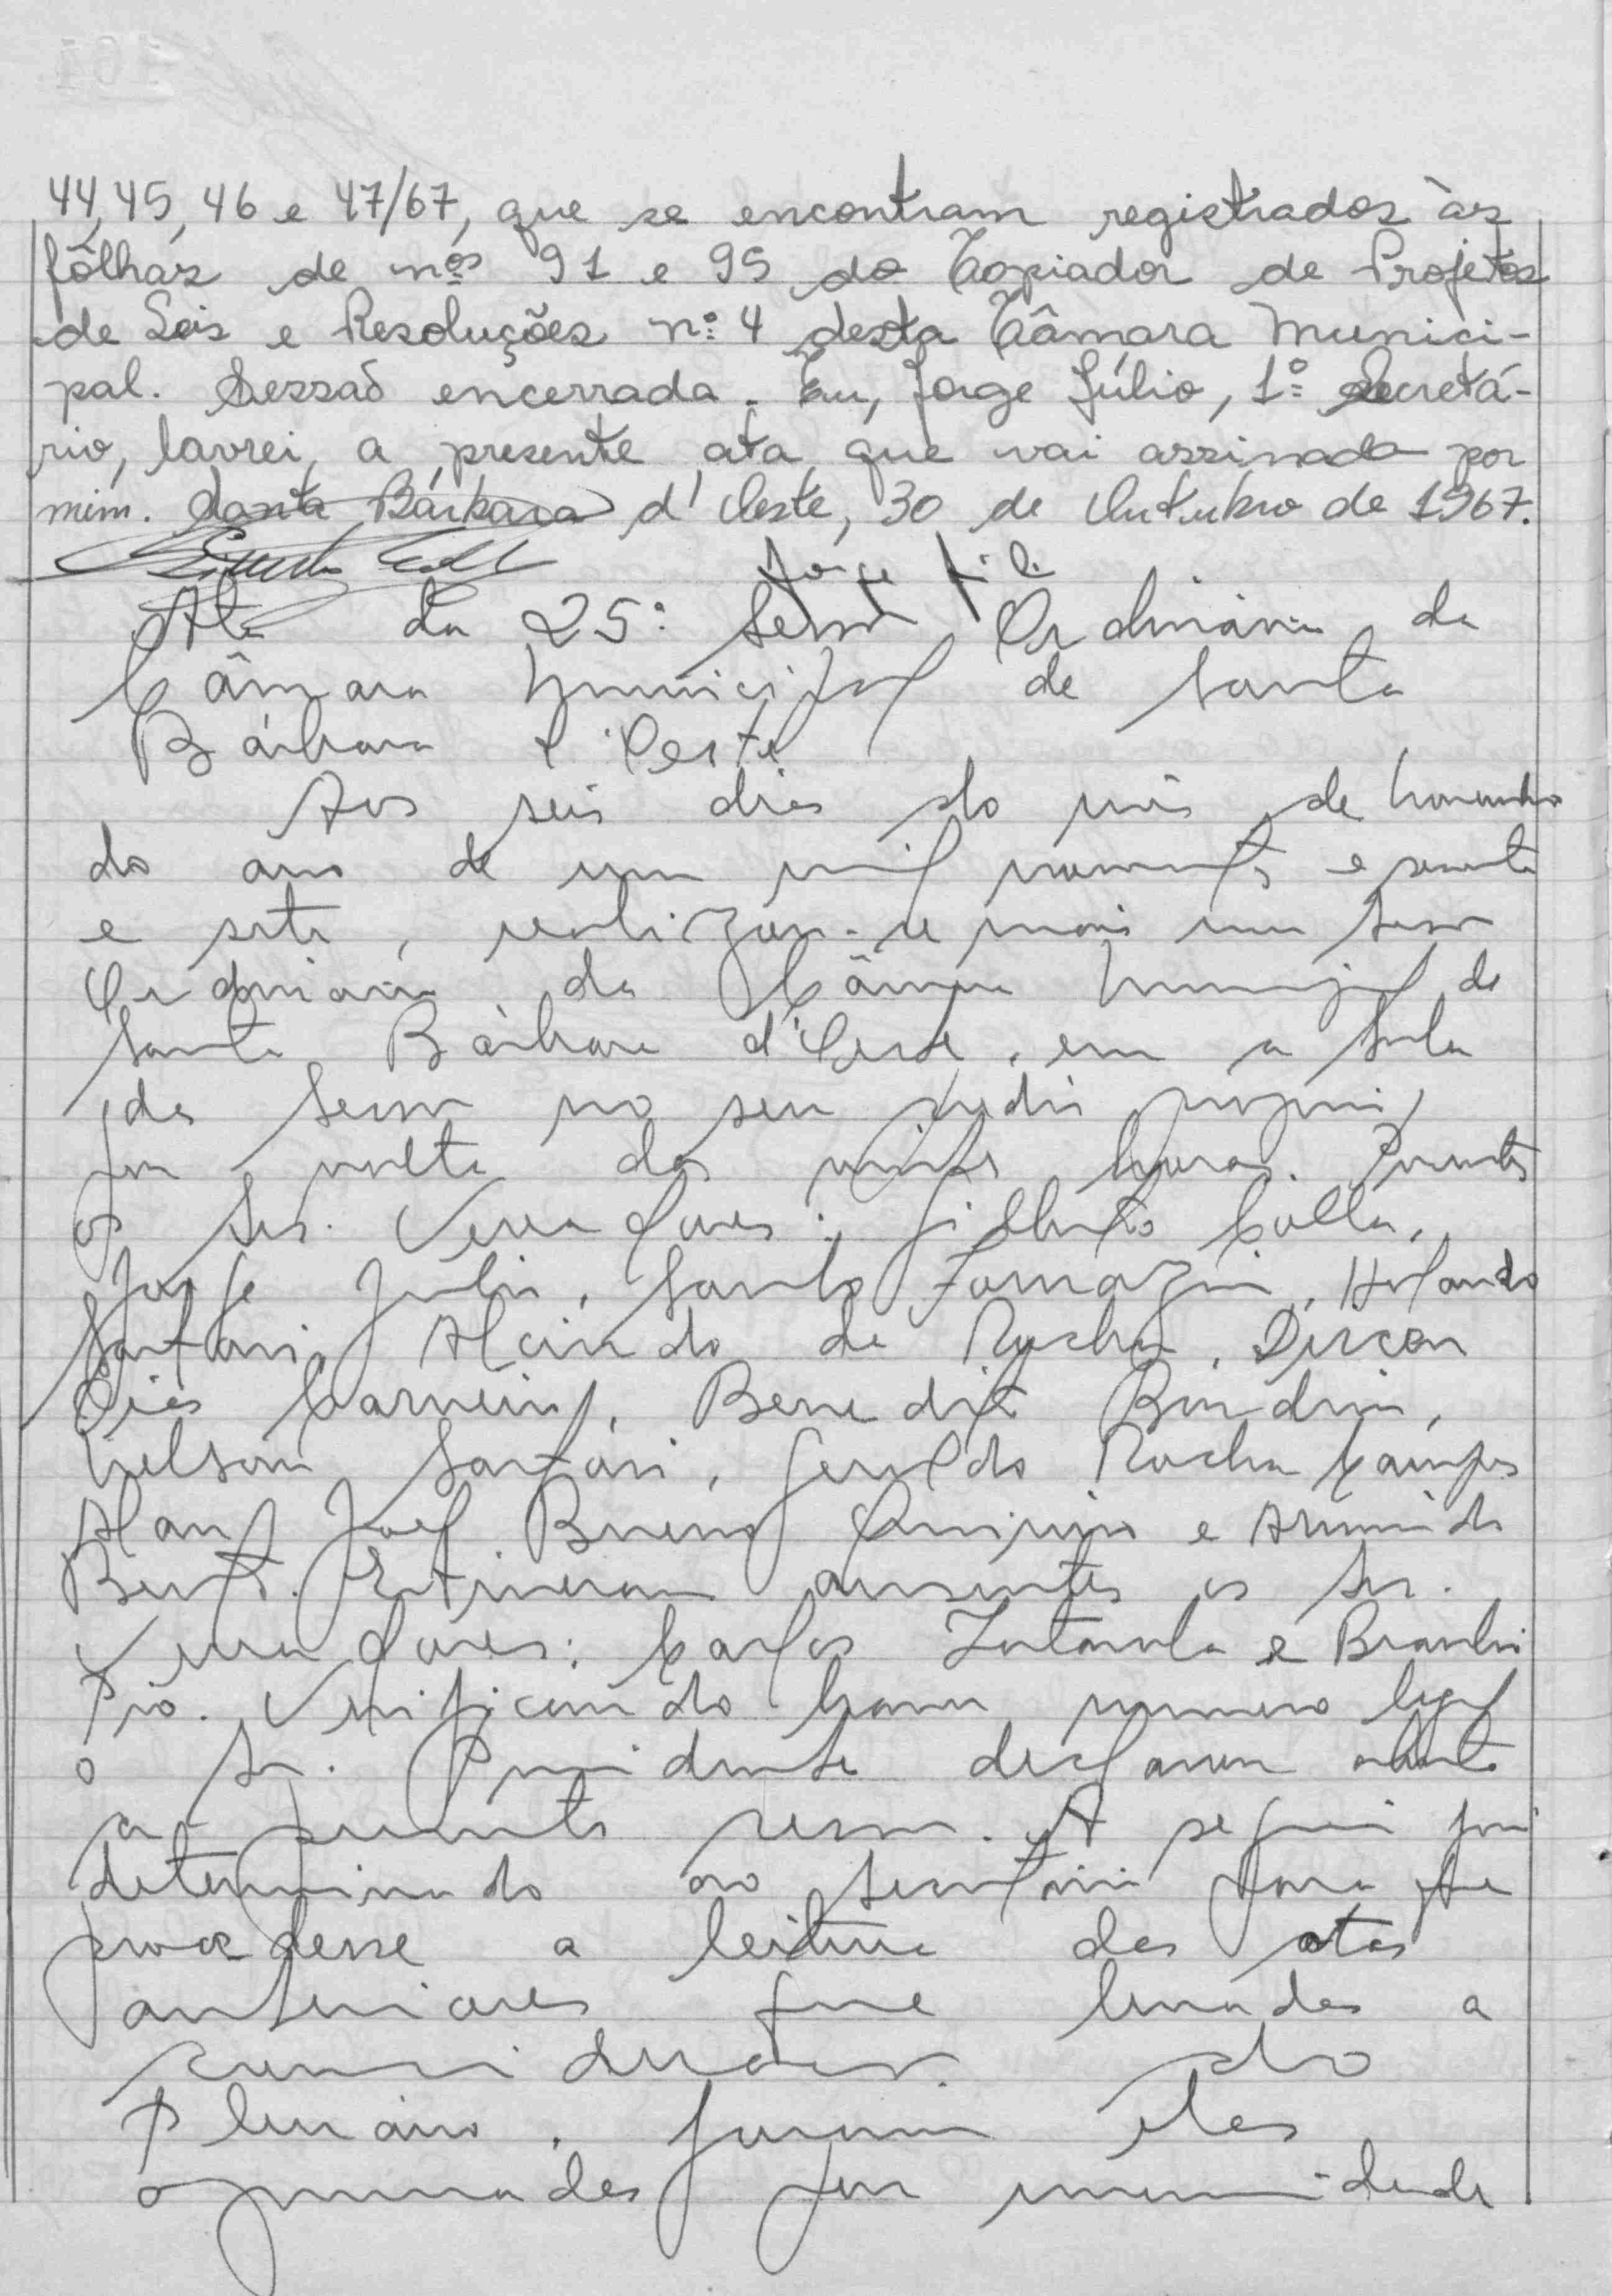 44, 45, 46 e 47/67, que se encontram registrados às
fôlhas de nºs 91 e 95 do Copiador de Projetos
de Leis e Resoluções nº 4 desta Câmara Munici-
pal. Sessão encerrada. Eu, Jorge Júlio, 1º Secretá-
rio, lavrei, a presente ata que vai assinada por
mim. Santa Bárbara d'Oeste, 30 de Outubro de 1967.
Jorge Júlio
Ata da 25ª Sessão Ordinária da
Câmara Municipal de Santa
Bárbara d'Oeste
Aos seis dias do mês de Novembro
do ano de um mil novecentos e sessenta
e sete, realizou-se mais uma Sessão
Ordinária da Câmara Municipal de
Santa Bárbara d'Oeste, em a Sala
das Sessões no seu prédio próprio,
por volta das vinte horas. Presentes
os Srs. Vereadores: Gilberto Colla,
Jorge Julio, Santo Fornazin, Holando
Sartori, Alcindo da Rocha, Dirceu
Dias Carneiro, Benedito
Nelson Sartori, Geraldo Rocha Campos
José Bueno Quirino e Armindo
Estiveram ausentes os Srs.
Vereadores: Carlos e Braulio
Pio. Verificando haver numero legal
o Sr. Presidente declarou aberta
a presente sessão. A seguir foi
determinado ao Secretário para que
procedesse a leitura das atas
anteriores que levadas a
consideração do
Plenário, foram elas
aprovadas por unanimidade